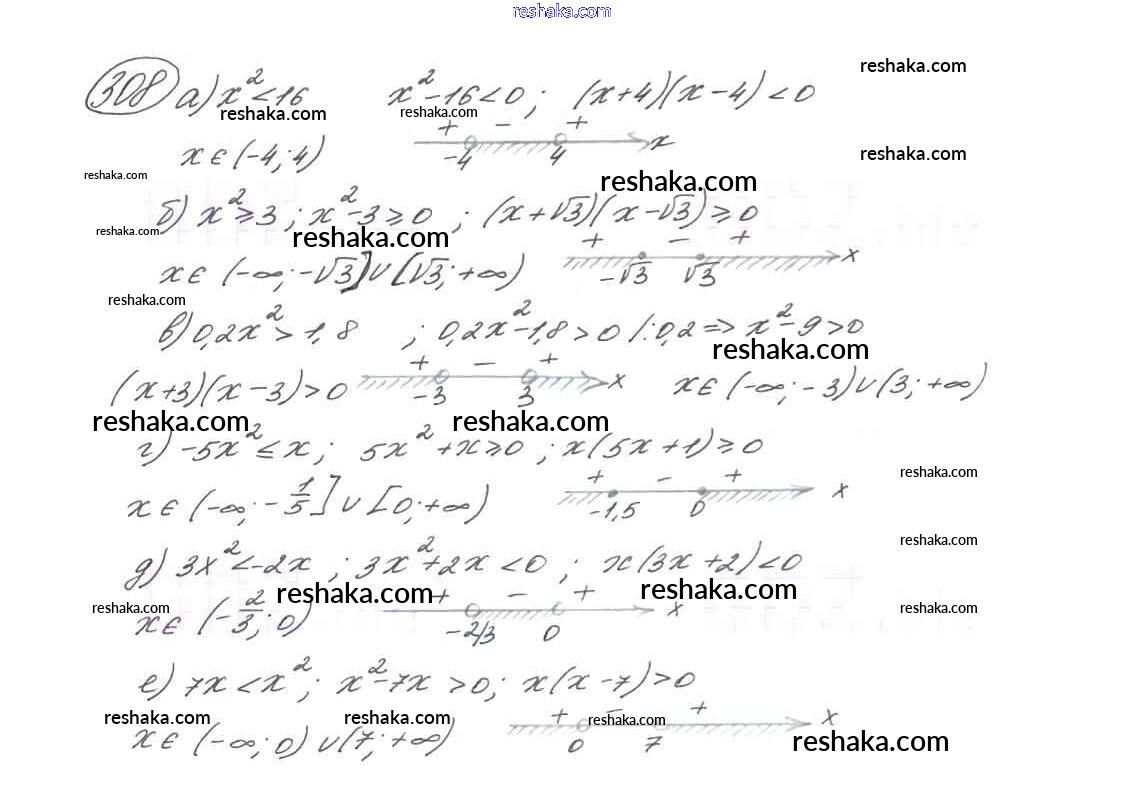 reshaka.com
308 а) x² < 16 x² - 16 < 0 ; (x+4)(x-4) < 0 reshaka.com
reshaka.com reshaka.com
+ - +
x ∈ (-4; 4) -4 4 x reshaka.com
reshaka.com reshaka.com
б) x² ≥ 3 ; x² - 3 ≥ 0 ; (x+√3)(x-√3) ≥ 0
reshaka.com reshaka.com + - +
x ∈ (-∞; -√3] ∪ [√3; +∞) -√3 √3 x
reshaka.com
в) 0,2x² > 1,8 ; 0,2x² - 1,8 > 0 /:0,2 => x² - 9 > 0
reshaka.com
+ - +
(x+3)(x-3) > 0 -3 3 x x ∈ (-∞; -3) ∪ (3; +∞)
reshaka.com reshaka.com
г) -5x² ≤ x ; 5x² + x ≥ 0 ; x(5x+1) ≥ 0
reshaka.com
+ - +
x ∈ (-∞; -1/5] ∪ [0; +∞) -1,5 0 x
reshaka.com
д) 3x² < -2x ; 3x² + 2x < 0 ; x(3x+2) < 0
reshaka.com + - + reshaka.com
reshaka.com reshaka.com
x ∈ (-2/3; 0) -2/3 0 x
е) 7x < x² ; x² - 7x > 0 ; x(x-7) > 0
reshaka.com reshaka.com + - reshaka.com +
x ∈ (-∞; 0) ∪ (7; +∞) 0 7 x
reshaka.com